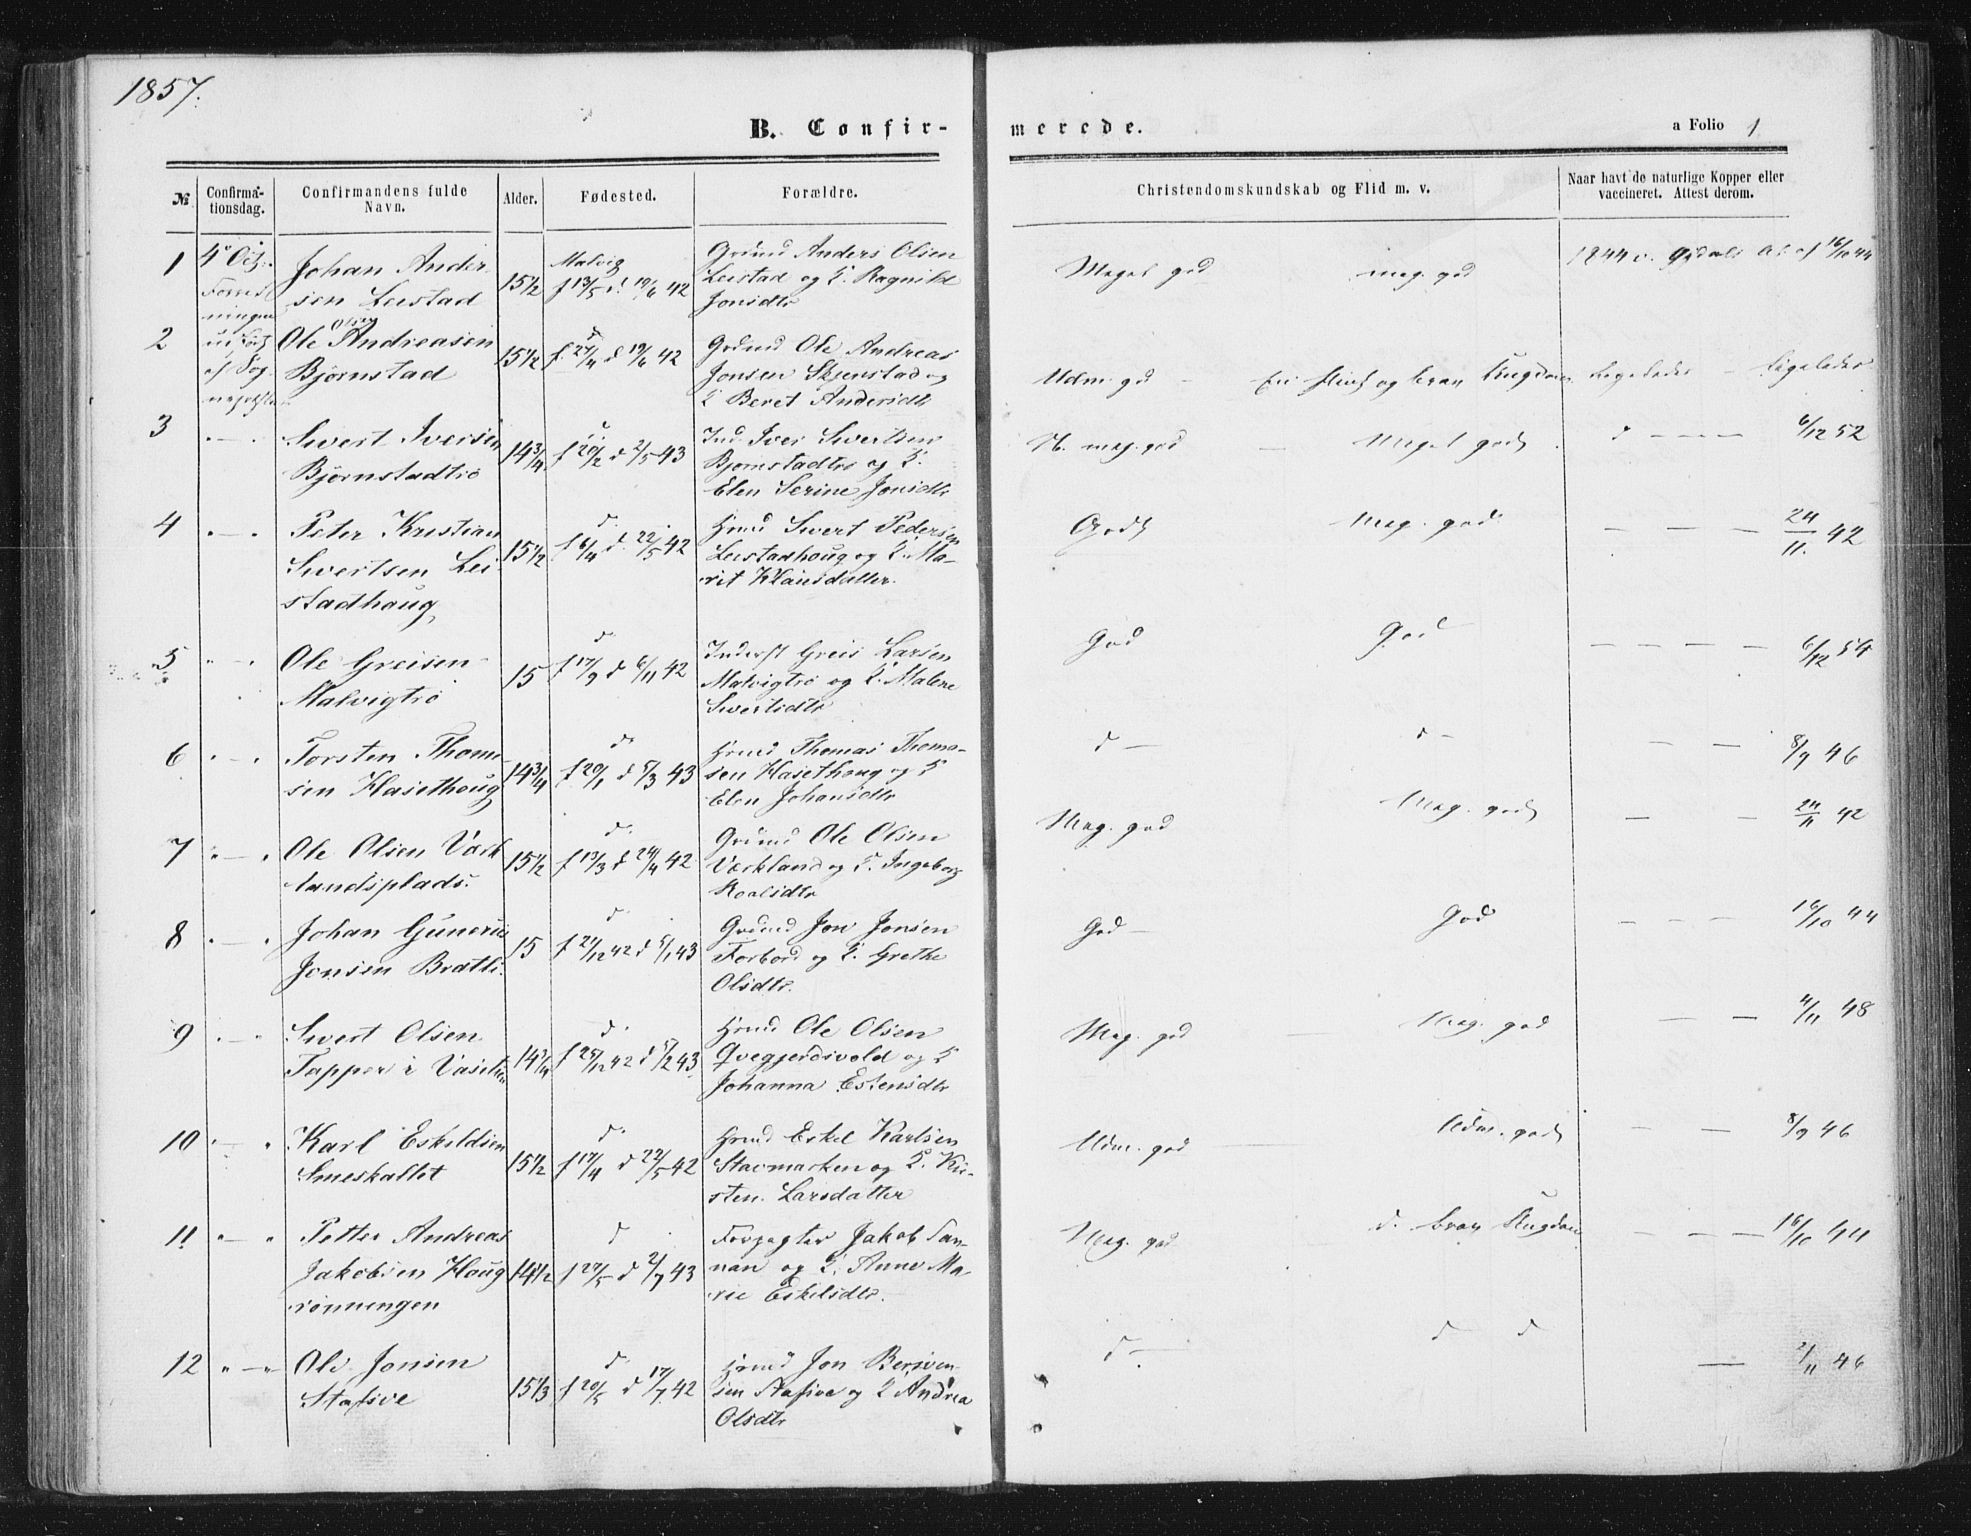 1857.
B. Confir-
merede.
a Folio 1
№
Confirma-
tionsdag.
Confirmandens fulde
Navn.
Alder.
Fødested.
Forældre.
Christendomskundskab og Flid m. v.
Naar havt de naturlige Kopper eller
vaccineret. Attest derom.
1
4 Oct.
Johan Ander
sen Leistad
15 1/2
Malvig
f 13/5 d. 19/6 42
Grdmd Anders Olsen
Leistad og K. Ragnild
Jonsdtr
Meget god
meg. god
1844 16/10 44
2
Ole Andreasen
Olsen
Bjørnstad
15 1/2
f. 27/4 d 19/6 42
Grdmd Ole Andreas
Jonsen Skjenstad og
K Beret Andersdtr
Udm. gd
og brav Ungdom
Ligeledes
Ligeledes
3
Sivert Iversen
Bjørnstadtrø
14 3/4
f 20/2 d 2/5 43
Ind. Iver Sivertsen
Bjørnstadtrø og K.
Elen Serine Jonsdtr
N. meg. god
Meget godt
d
6/12 52
4
Peter Kristian
Sivertsen Lei
stadhoug
15 1/2
d.
f 6/4 d. 22/5 42
Hmd Sivert Pedersen
Leistadhoug og K. Ma-
rit Klausdatter
Godt
Meg. god
24/11. 42
5
Ole Greisen
Malvigtrø
15
d.
f 17/9 d 6/11 42
Inderst Greis Larsen
Malvigtrø og K. Malene
Sivertsdtr
God
God
6/12 54
6
Torsten Thom
sen Hasethoug
14 3/4
d.
f 20/1 d 5/3 43
Hmd Thomas Thoma-
sen Hasethoug og K
Elen Johansdtr
d
d
8/9 46
7
Ole Olsen Værk
landsplads.
15 1/2
d.
f 13/3 d 24/4 42
Grdmd Ole Olsen
Værkland og K. Ingeborg
Roalsdtr
Meg. god
Meg. godt
24/11 42
8
Johan Guneriu
Jonsen Bratli
15
d.
f 27/12 42 d 5/1 43
Grdmd Jon Jonsen
Forbord og K. Grethe
Olsdtr.
God
God
16/10 44
9
Sivert Olsen
Tapper i
14 3/4
d.
f 25/12 42 d 5/2 43
Hmd Ole Olsen
Qvegjerdsvold og K
Johanna Estensdtr
Meg. god
Meg. god
4/11 48
10
Karl Eskildsen
Smeskallet
15 1/2
d.
f 17/4 d 22/5 42
Hmd Eskel Karlsen
Stavmarken og K. Kir-
sten Larsdatter
Udm. god
Udm. godt
8/9 46
11
Petter Andreas
Jakobsen Houg
rønningen
14 1/2
d
f 27/5 d 2/7 43
Forpagter Jakob San-
nan og K. Anne Ma
rie Eskelsdtr.
Meg. god
d. brav Ungdom
16/10 44
12
Ole Jonsen
Stafsve
15 1/3
d.
f 20/5 d 17/7 42
Hmd Jon Bersven-
sen Stafsve og K Andrea
Olsdtr
d.
d d
2/11 46